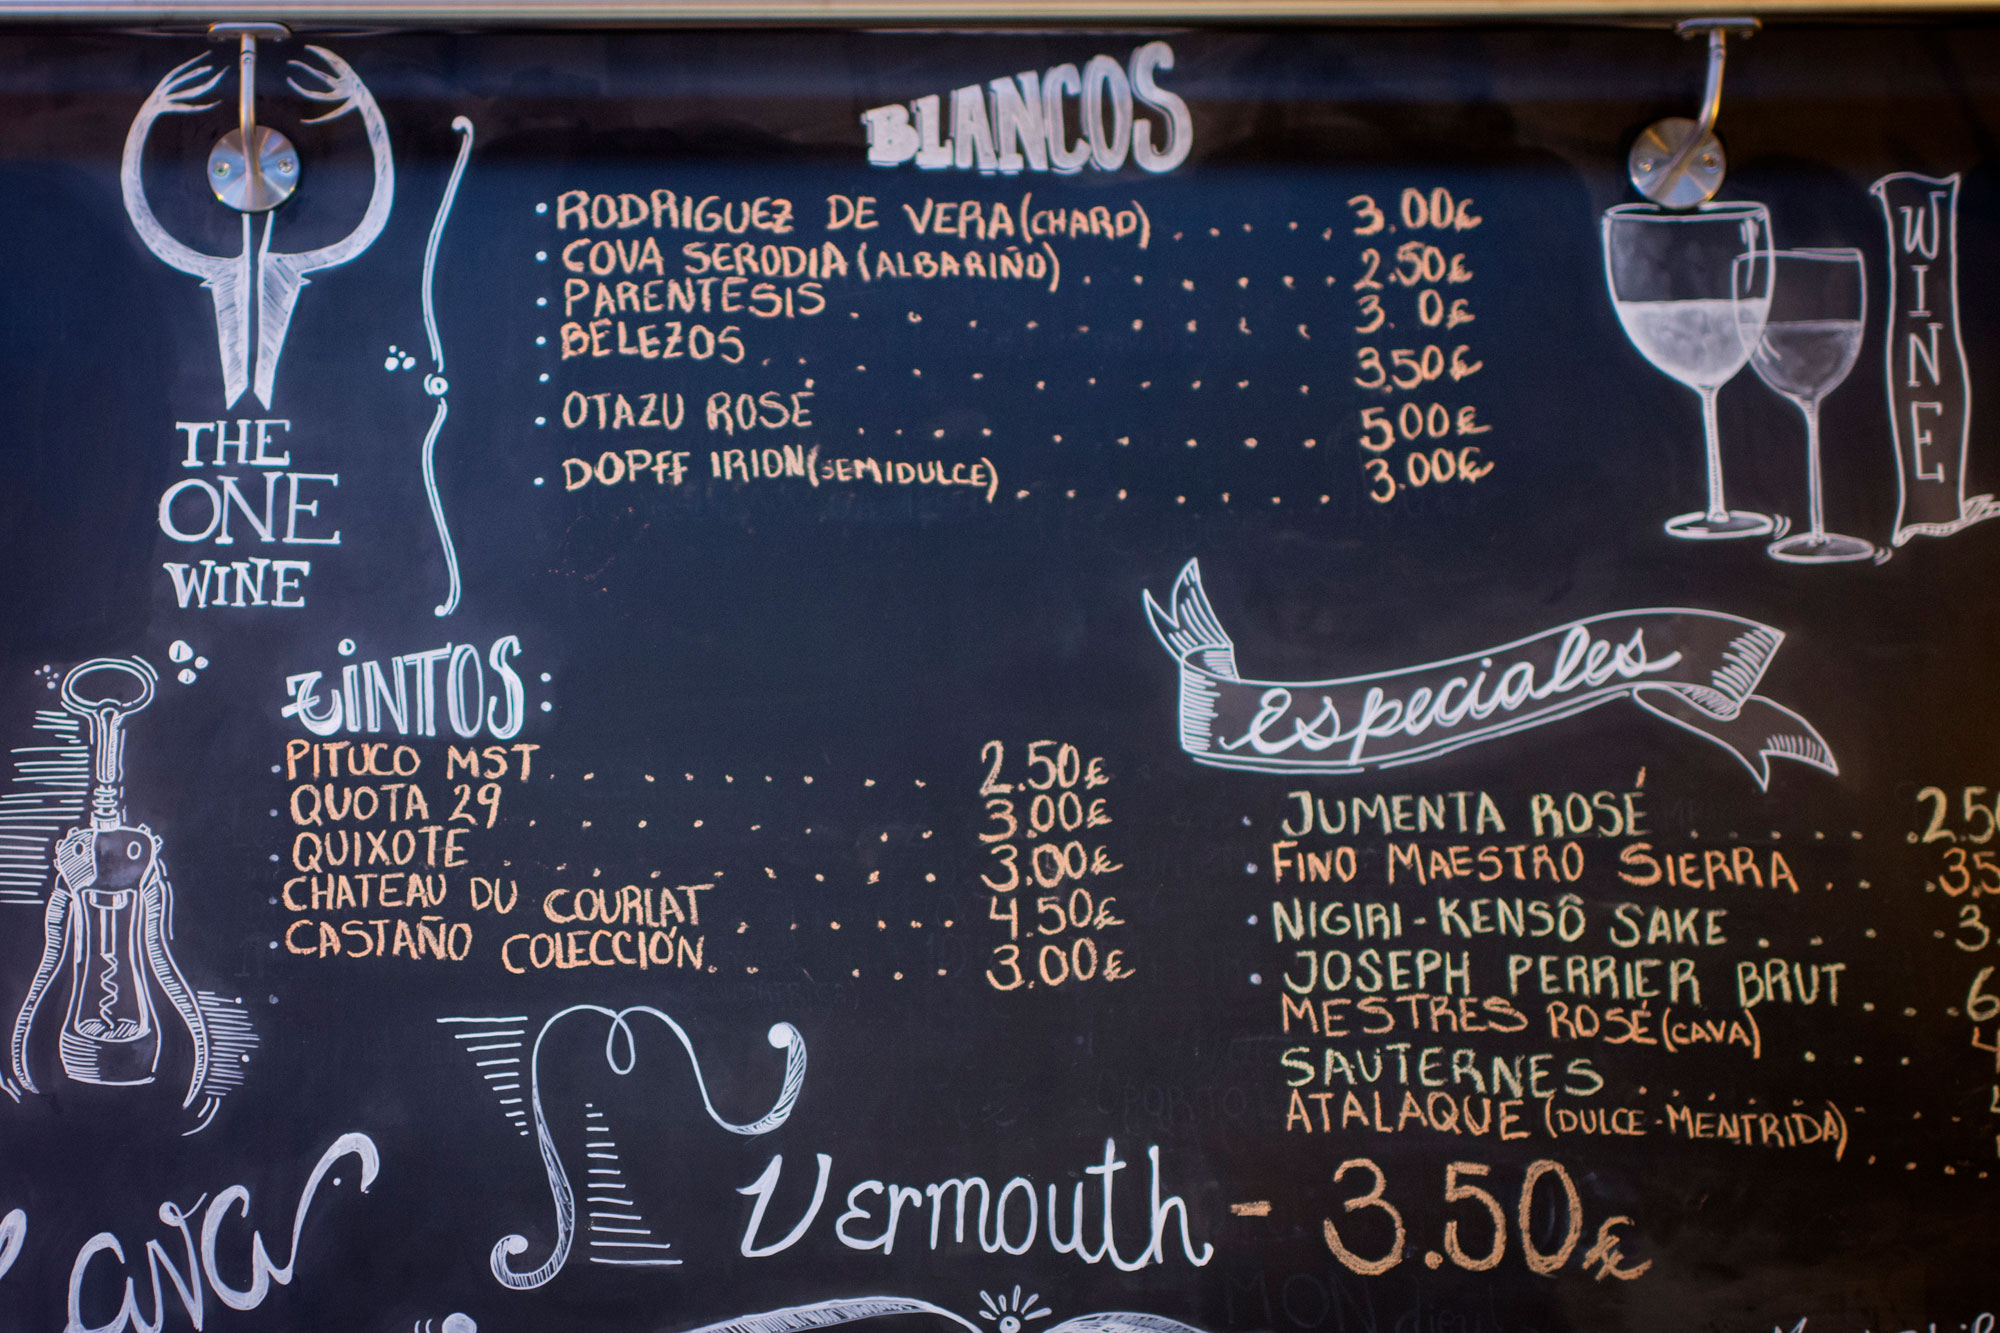 BLANCOS
• RODRIGUEZ DE VERA (CHARD) . . . . . 3.00€
• COVA SERODIA (ALBARIÑO) . . . . . . 2.50€
• PARENTESIS . . . . . . . . 3. 0€
• BELEZOS . . . . . . . . . 3,50€
•
• OTAZU ROSÉ . . . . . . . . 500€
• DOPFF IRION (SEMIDULCE) . . . . . . . 3.00€
WINE
THE
ONE
WINE
TINTOS:
• PITUCO MST . . . . . . . . 2.50€
• QUOTA 29 . . . . . . . . 3.00€
• QUIXOTE . . . . . . . . 3.00€
• CHATEAU DU COURLAT . . . . . 4.50€
• CASTAÑO COLECCIÓN . . . . . . 3.00€
Especiales
• JUMENTA ROSÉ . . . . . . 2.5
• FINO MAESTRO SIERRA . . . 3,5
• NIGIRI-KENSÔ SAKE . . . . 3.
• JOSEPH PERRIER BRUT . . . 6
MESTRES ROSÉ (CAVA) . . . . 4
SAUTERNES . . . .
ATALAQUE (DULCE-MENTRIDA) . . . .
Vermouth - 3.50€
cava